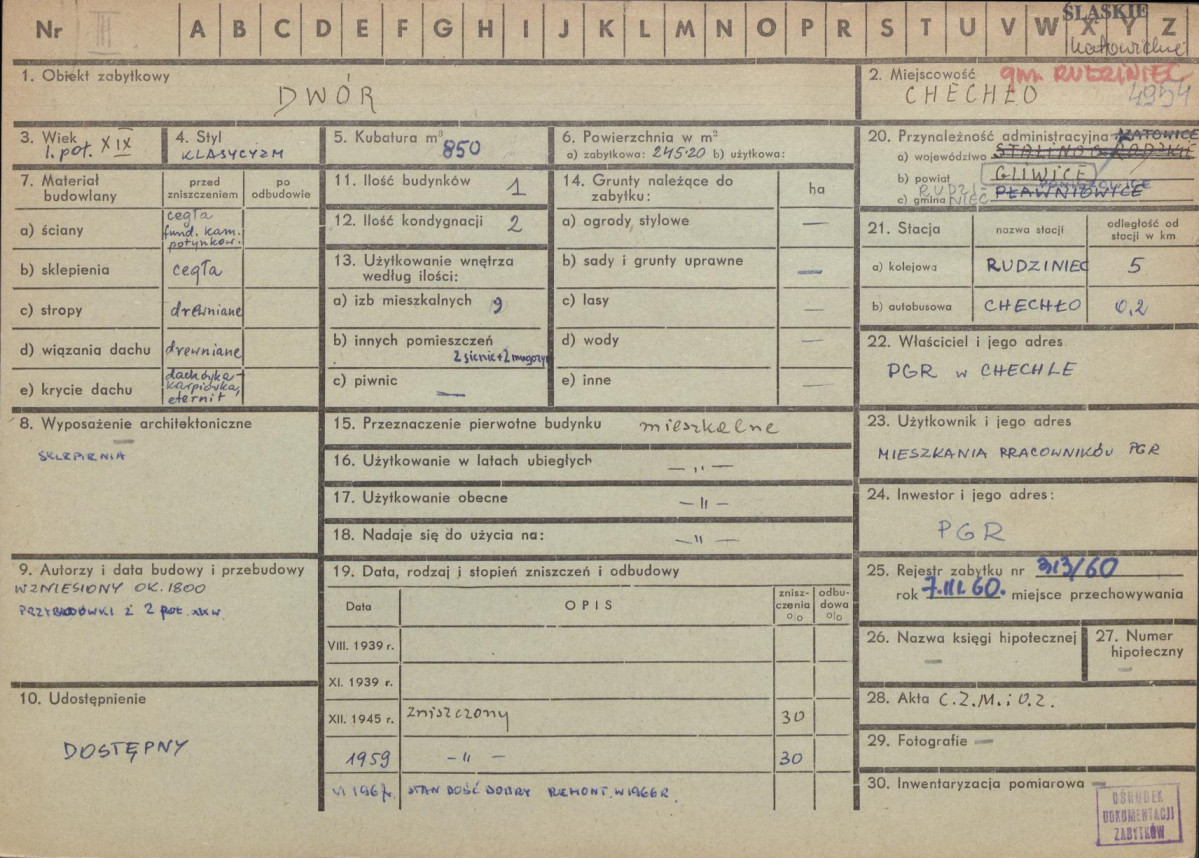 Nr III A B C D E F G H I J K L M N O P R S T U V W X Y Z
ŚLĄSKIE
katowickie
1. Obiekt zabytkowy
DWÓR
2. Miejscowość gm. RUDZINIEC
CHECHŁO 4954
3. Wiek
1. poł. XIX
4. Styl
KLASYCYZM
5. Kubatura m³
850
6. Powierzchnia w m²
a) zabytkowa: 245.20 b) użytkowa:
7. Materiał budowlany
przed zniszczeniem
po odbudowie
a) ściany
cegła
fund. kam.
potynkow.
b) sklepienia cegła
c) stropy drewniane
d) wiązania dachu drewniane
e) krycie dachu
dachówka
karpiówka,
eternit
8. Wyposażenie architektoniczne
—
SKLEPIENIA
9. Autorzy i data budowy i przebudowy
WZNIESIONY OK. 1800
PRZYBUDÓWKI Z 2 poł. XIX w.
10. Udostępnienie
DOSTĘPNY
11. Ilość budynków 1
12. Ilość kondygnacji 2
13. Użytkowanie wnętrza
według ilości:
a) izb mieszkalnych 9
b) innych pomieszczeń
2 sienie + 2
c) piwnic —
14. Grunty należące do
zabytku:
ha
a) ogrody, stylowe —
b) sady i grunty uprawne —
c) lasy —
d) wody —
e) inne —
15. Przeznaczenie pierwotne budynku mieszkalne
16. Użytkowanie w latach ubiegłych — „ —
17. Użytkowanie obecne — " —
18. Nadaje się do użycia na: — " —
19. Data, rodzaj i stopień zniszczeń i odbudowy
Data
OPIS
znisz-
czenia
%
odbu-
dowa
%
VIII. 1939 r.
XI. 1939 r.
XII. 1945 r. zniszczony 30
1959 — " — 30
VI 1967r. STAN DOŚĆ DOBRY REMONT. W 1966 R.
20. Przynależność administracyjna KATOWICE
a) województwo STALINOGRODZKIE
b) powiat GLIWICE
c) gmina RUDZINIEC PŁAWNIOWICE
21. Stacja
nazwa stacji
odległość od
stacji w km
a) kolejowa RUDZINIEC 5
b) autobusowa CHECHŁO 0,2
22. Właściciel i jego adres
PGR w CHECHLE
23. Użytkownik i jego adres
MIESZKANIA PRACOWNIKÓW PGR
24. Inwestor i jego adres:
PGR
25. Rejestr zabytku nr 313/60
rok 7.III.60. miejsce przechowywania
26. Nazwa księgi hipotecznej
—
27. Numer
hipoteczny
—
28. Akta C.Z.M. i O.Z.
29. Fotografie —
30. Inwentaryzacja pomiarowa —
OŚRODEK
DOKUMENTACJI
ZABYTKÓW